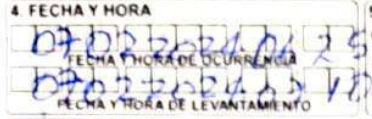 4. FECHA Y HORA
07 02 2024 06 25
FECHA Y HORA DE OCURRENCIA
07 02 2024 07 10
FECHA Y HORA DE LEVANTAMIENTO